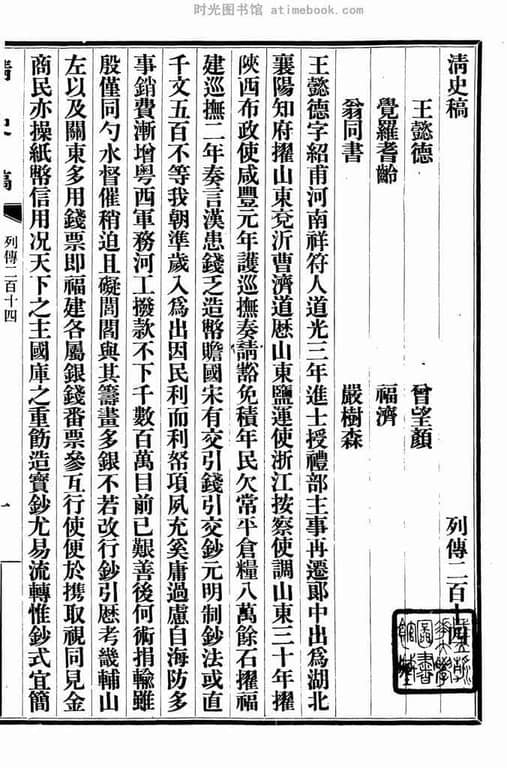 时光图书馆 atimebook.com
清史稿 列傳二百十四
王懿德 曾望顏
覺羅耆齡 福濟
翁同書 嚴樹森
王懿德字紹甫河南祥符人道光三年進士授禮部主事再遷郎中出爲湖北
襄陽知府擢山東兗沂曹濟道歷山東鹽運使浙江按察使調山東三十年擢
陝西布政使咸豐元年護巡撫奏請豁免積年民欠常平倉糧八萬餘石擢福
建巡撫二年奏言漢患錢乏造幣贍國宋有交引錢引交鈔元明制鈔法或直
千文五百不等我朝準歲入爲出因民利而利帑項夙充奚庸過慮自海防多
事銷費漸增粵西軍務河工撥款不下千數百萬目前已艱善後何術捐輸雖
殷僅同勺水督催稍迫且礙閭閻與其籌畫多銀不若改行鈔引歷考畿輔山
左以及關東多用錢票即福建各屬銀錢番票參互行使便於攜取視同見金
商民亦操紙幣信用況天下之主國庫之重飭造寶鈔尤易流轉惟鈔式宜簡
清史稿 列傳二百十四 一